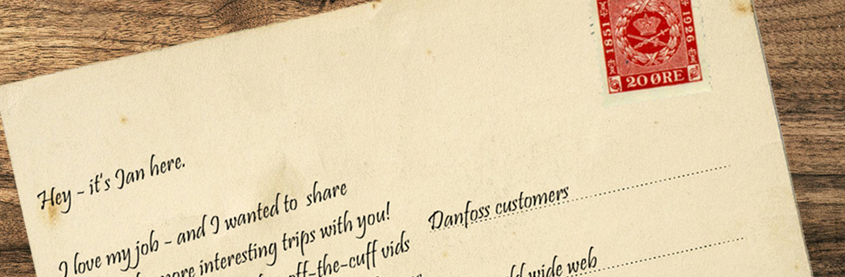 1851
1926
20 ØRE
Hey - it's Jan here.
I love my job - and I wanted to share
more interesting trips with you!
off-the-cuff vids
Danfoss customers
wide web